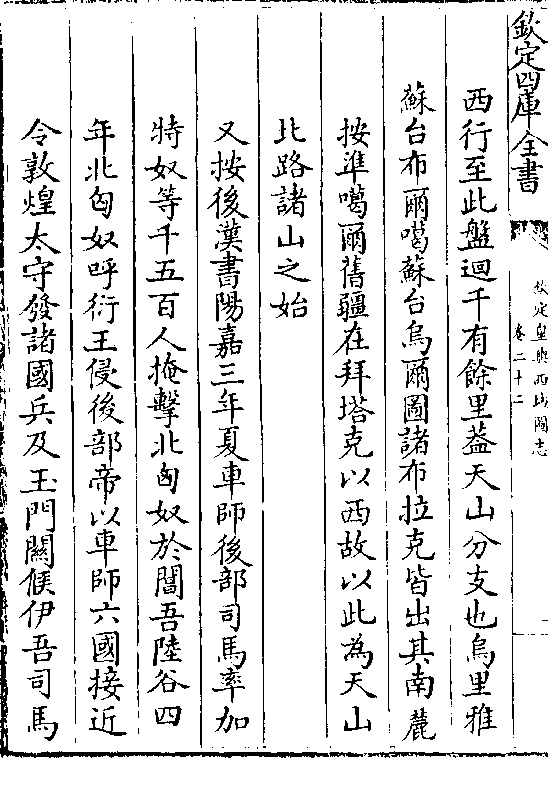 欽定四庫全書
欽定皇輿西域圖志
卷二十二
西行至此盤迴千有餘里葢天山分支也烏里雅
蘇台布爾噶蘇台烏爾圖諸布拉克皆出其南麓
按準噶爾舊疆在拜塔克以西故以此為天山
北路諸山之始
又按後漢書陽嘉三年夏車師後部司馬率加
特奴等千五百人掩擊北匈奴於閶吾陸谷四
年北匈奴呼衍王侵後部帝以車師六國接近
令敦煌太守發諸國兵及玉門關候伊吾司馬